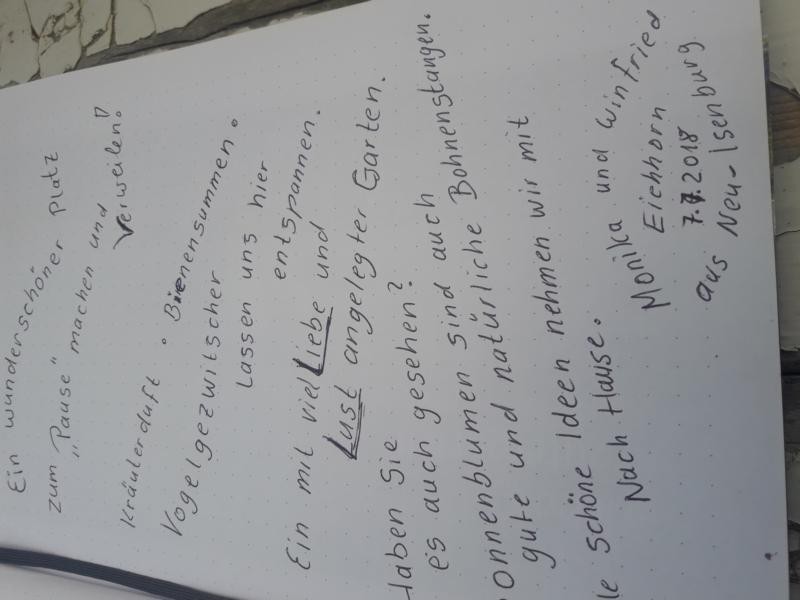 Ein wunderschöner Platz
zum „Pause" machen und
verweilen!
Kräuterduft • Bienensummen.
Vogelgezwitscher
lassen uns hier
entspannen.
Ein mit viel Liebe und
Lust angelegter Garten.
Haben Sie
es auch gesehen?
onnenblumen sind auch
gute und natürliche Bohnenstangen.
le schöne Ideen nehmen wir mit
Nach Hause.
Monika und Winfried
Eichhorn
7.7.2018
aus Neu-Isenburg